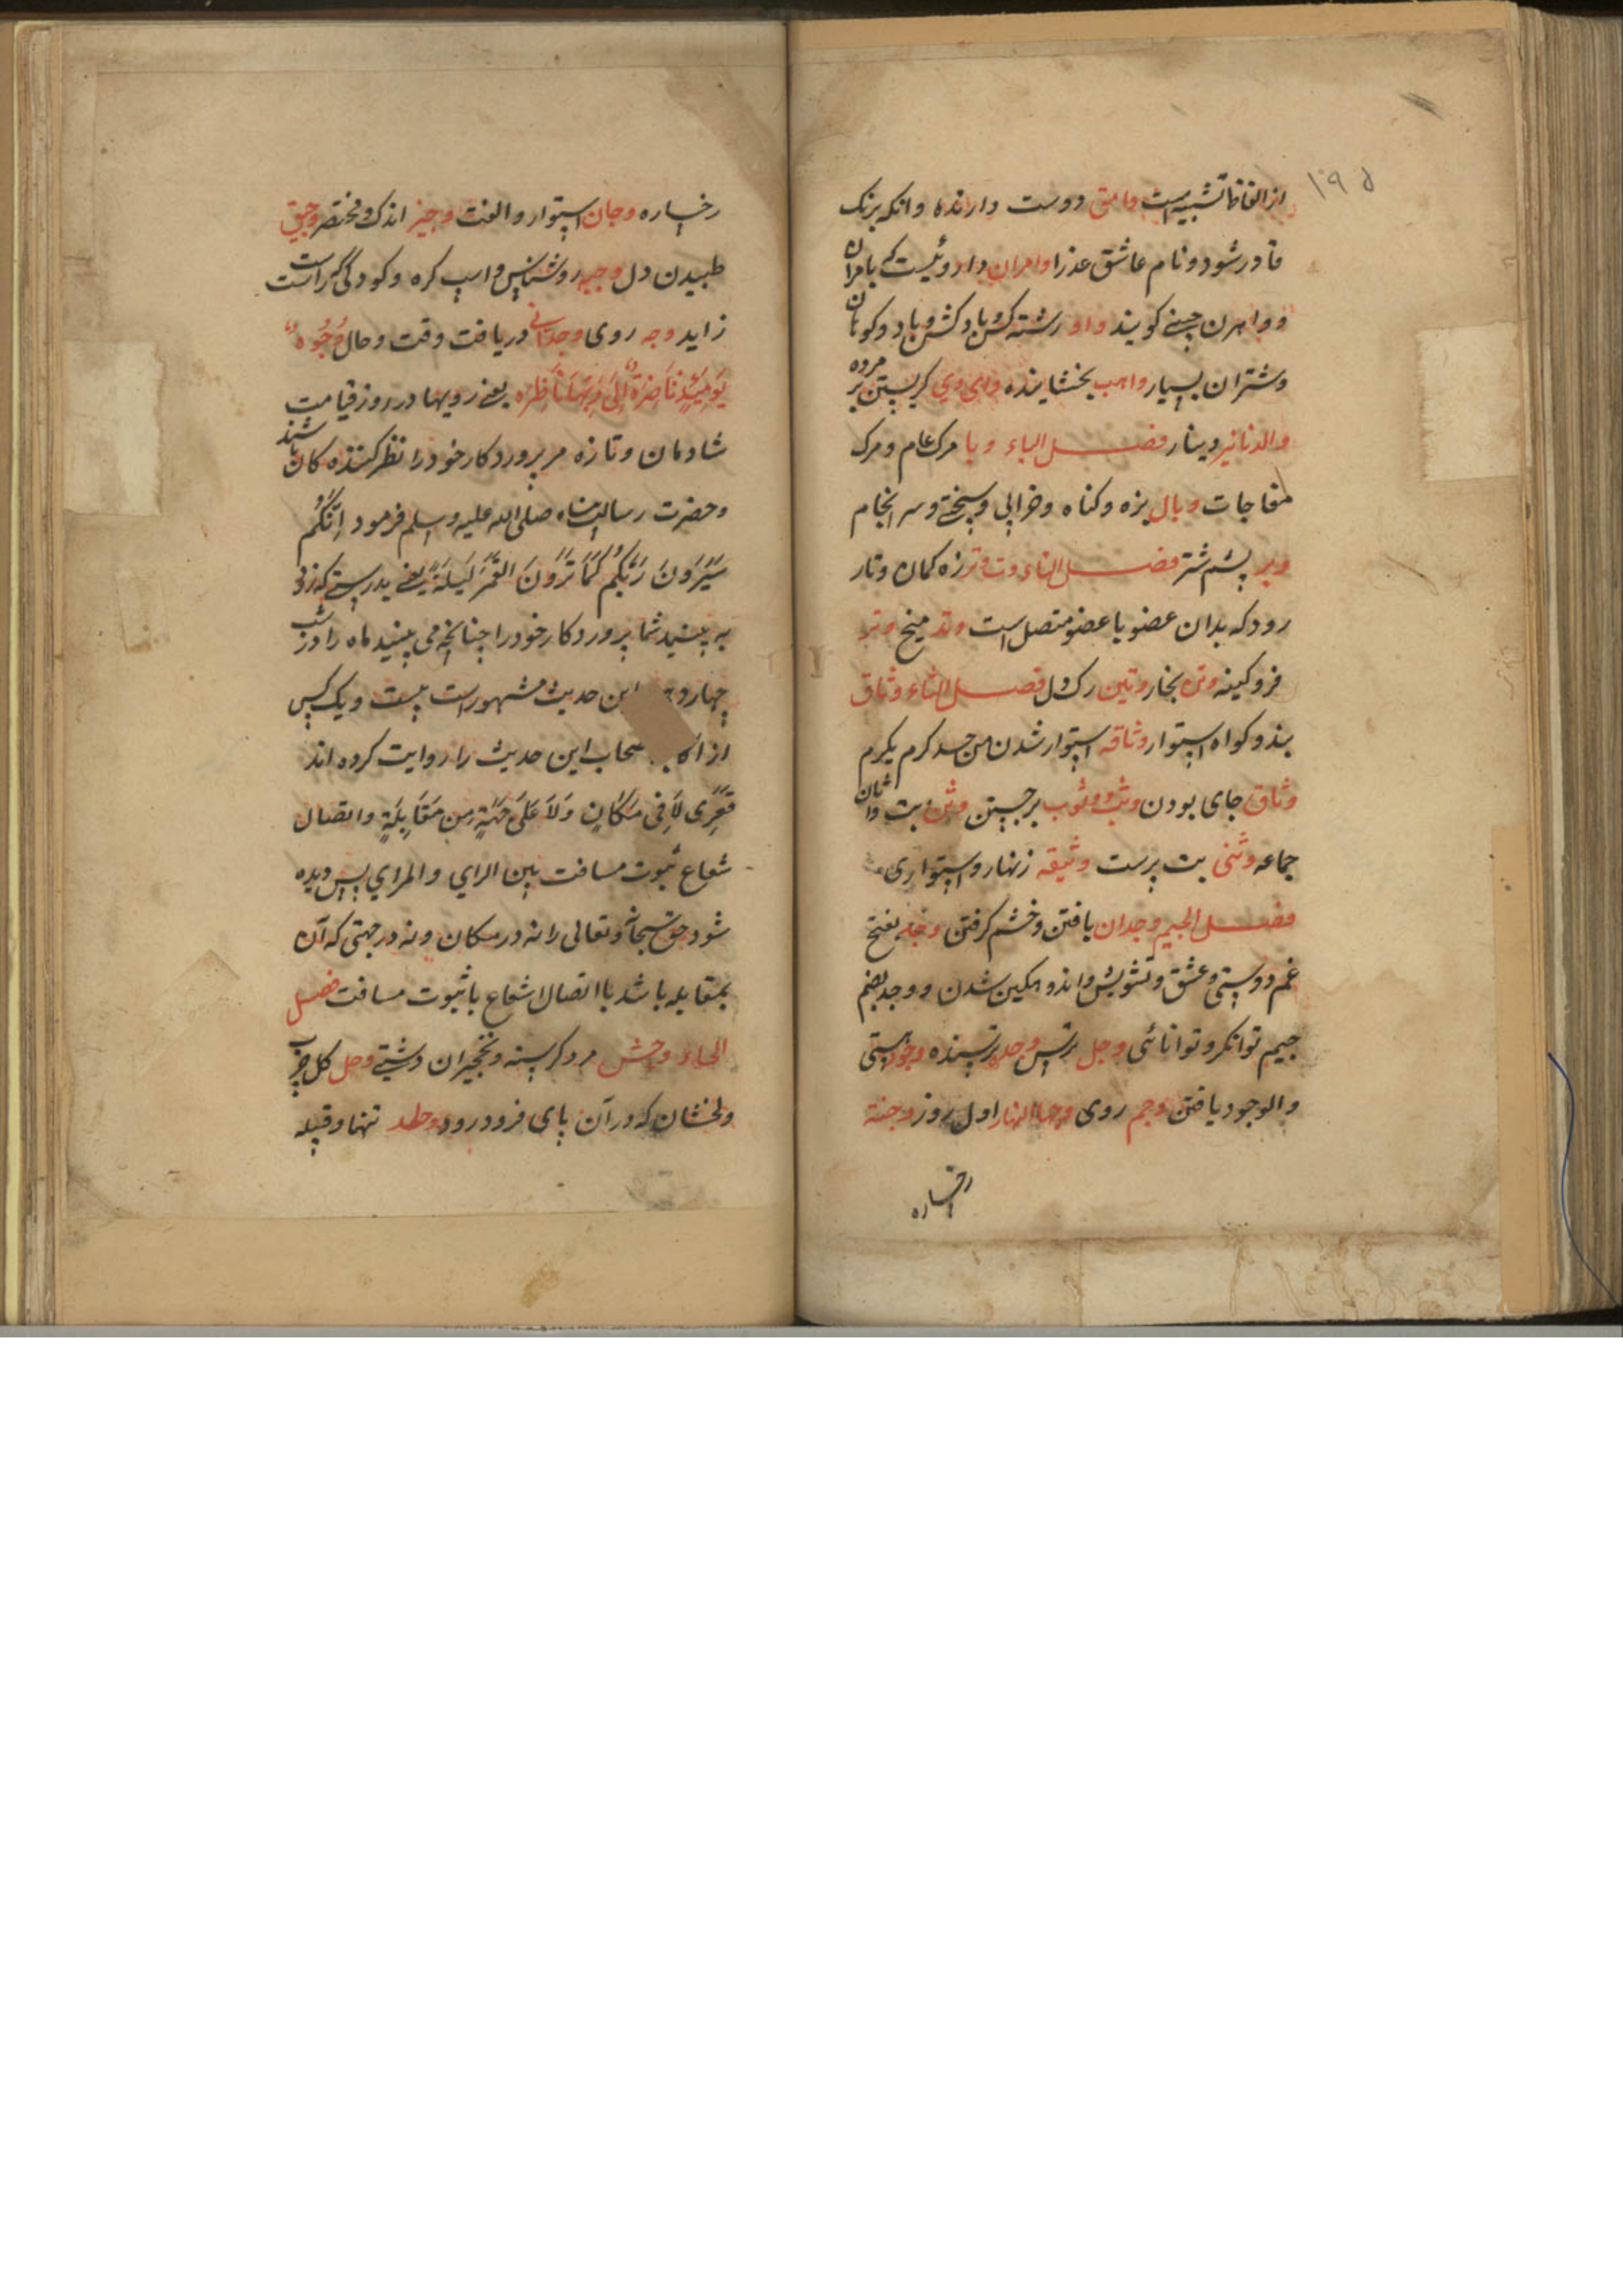 ۱۹۵
از الفاظ تشبیه است وامق دوست دارنده و انکه برنک
قادر شود و نام عاشق عذرا وامران داروئیست که بامران
و وامرن چینی کویند واو رشته کش و باد کش و باد و کوهان
و شتران بسیار واهب بخشاینده وای وی کریستن بر مرده
والدنانیر دینار فصل الباء وبا مرک عام و مرک
مفاجات وبال بزه و کناه و خرابی و سختی و سر انجام
وبر پشم شتر فصل التاء وت وتر زه کمان و تار
رود که بدان عضو با عضو متصل است وتد میخ وتر
فرو کینه وتره بخار وتین رک دل فصل الثاء وثاق
بند و کواه استوار وثاقه استوار شدن من حد کرم یکرم
وثاق جای بودن وثب و وثوب برجستن وثن بت واثان
جماعه وثنی بت پرست وثیقه زنهار و استواری
فصل الجیم وجدان یافتن و خشم کرفتن وجد بفتح
غم و دوستی و عشق و تشویش و اندوهکین شدن و وجد بضم
جیم توانکر و توانائی وجل ترس وجل ترسنده وجود هستی
والوجود یافتن وجم روی وجه النهار اول روز وجنة
رخساره
رخساره وجان استوار و الفت وجیز اندک و مختصر وجیق
طبیدن دل وجیه روشناس و اسپ کره و کودکی که راست
زاید وجه روی وجدانی دریافت وقت و حال وُجُوهٌ
یَوْمَئِذٍ نَاضِرَةٌ اِلَی رَبِّهَا نَاظِرَه یعنی رویها در روز قیامت
شادمان و تازه مر پروردکار خود را نظر کننده کان باشند
و حضرت رسالت پناه صلی الله علیه وسلم فرمود اِنَّکُمْ
سَتَرَوْنَ رَبَّکُمْ کَمَا تَرَوْنَ القَمَرَ لَیلَةَ یعنی بدرستی که زود
به بینید شما پروردکار خود را چنانچه می بینید ماه را در شب
چهارد این حدیث مشهور است بیست و یک کس
از اکا صحاب این حدیث را روایت کرده اند
فَیُرَی لَا فِی مَکَانٍ وَلَا عَلَی جِهَةٍ مِن مَقَابِلَةٍ و اتصال
شعاع ثبوت مسافت بین الرای و المرای پس دیده
شود حق سبحانه و تعالی را نه در مکان و نه در جهتی که آن
بمقابله باشد یا اتصال شعاع یا ثبوت مسافت فصل
الحاء وحش مرد کرسنه و نخجیران دشتی وحل کل چرب
و لخشان که در آن پای فرو رود وحد تنها و قبیله